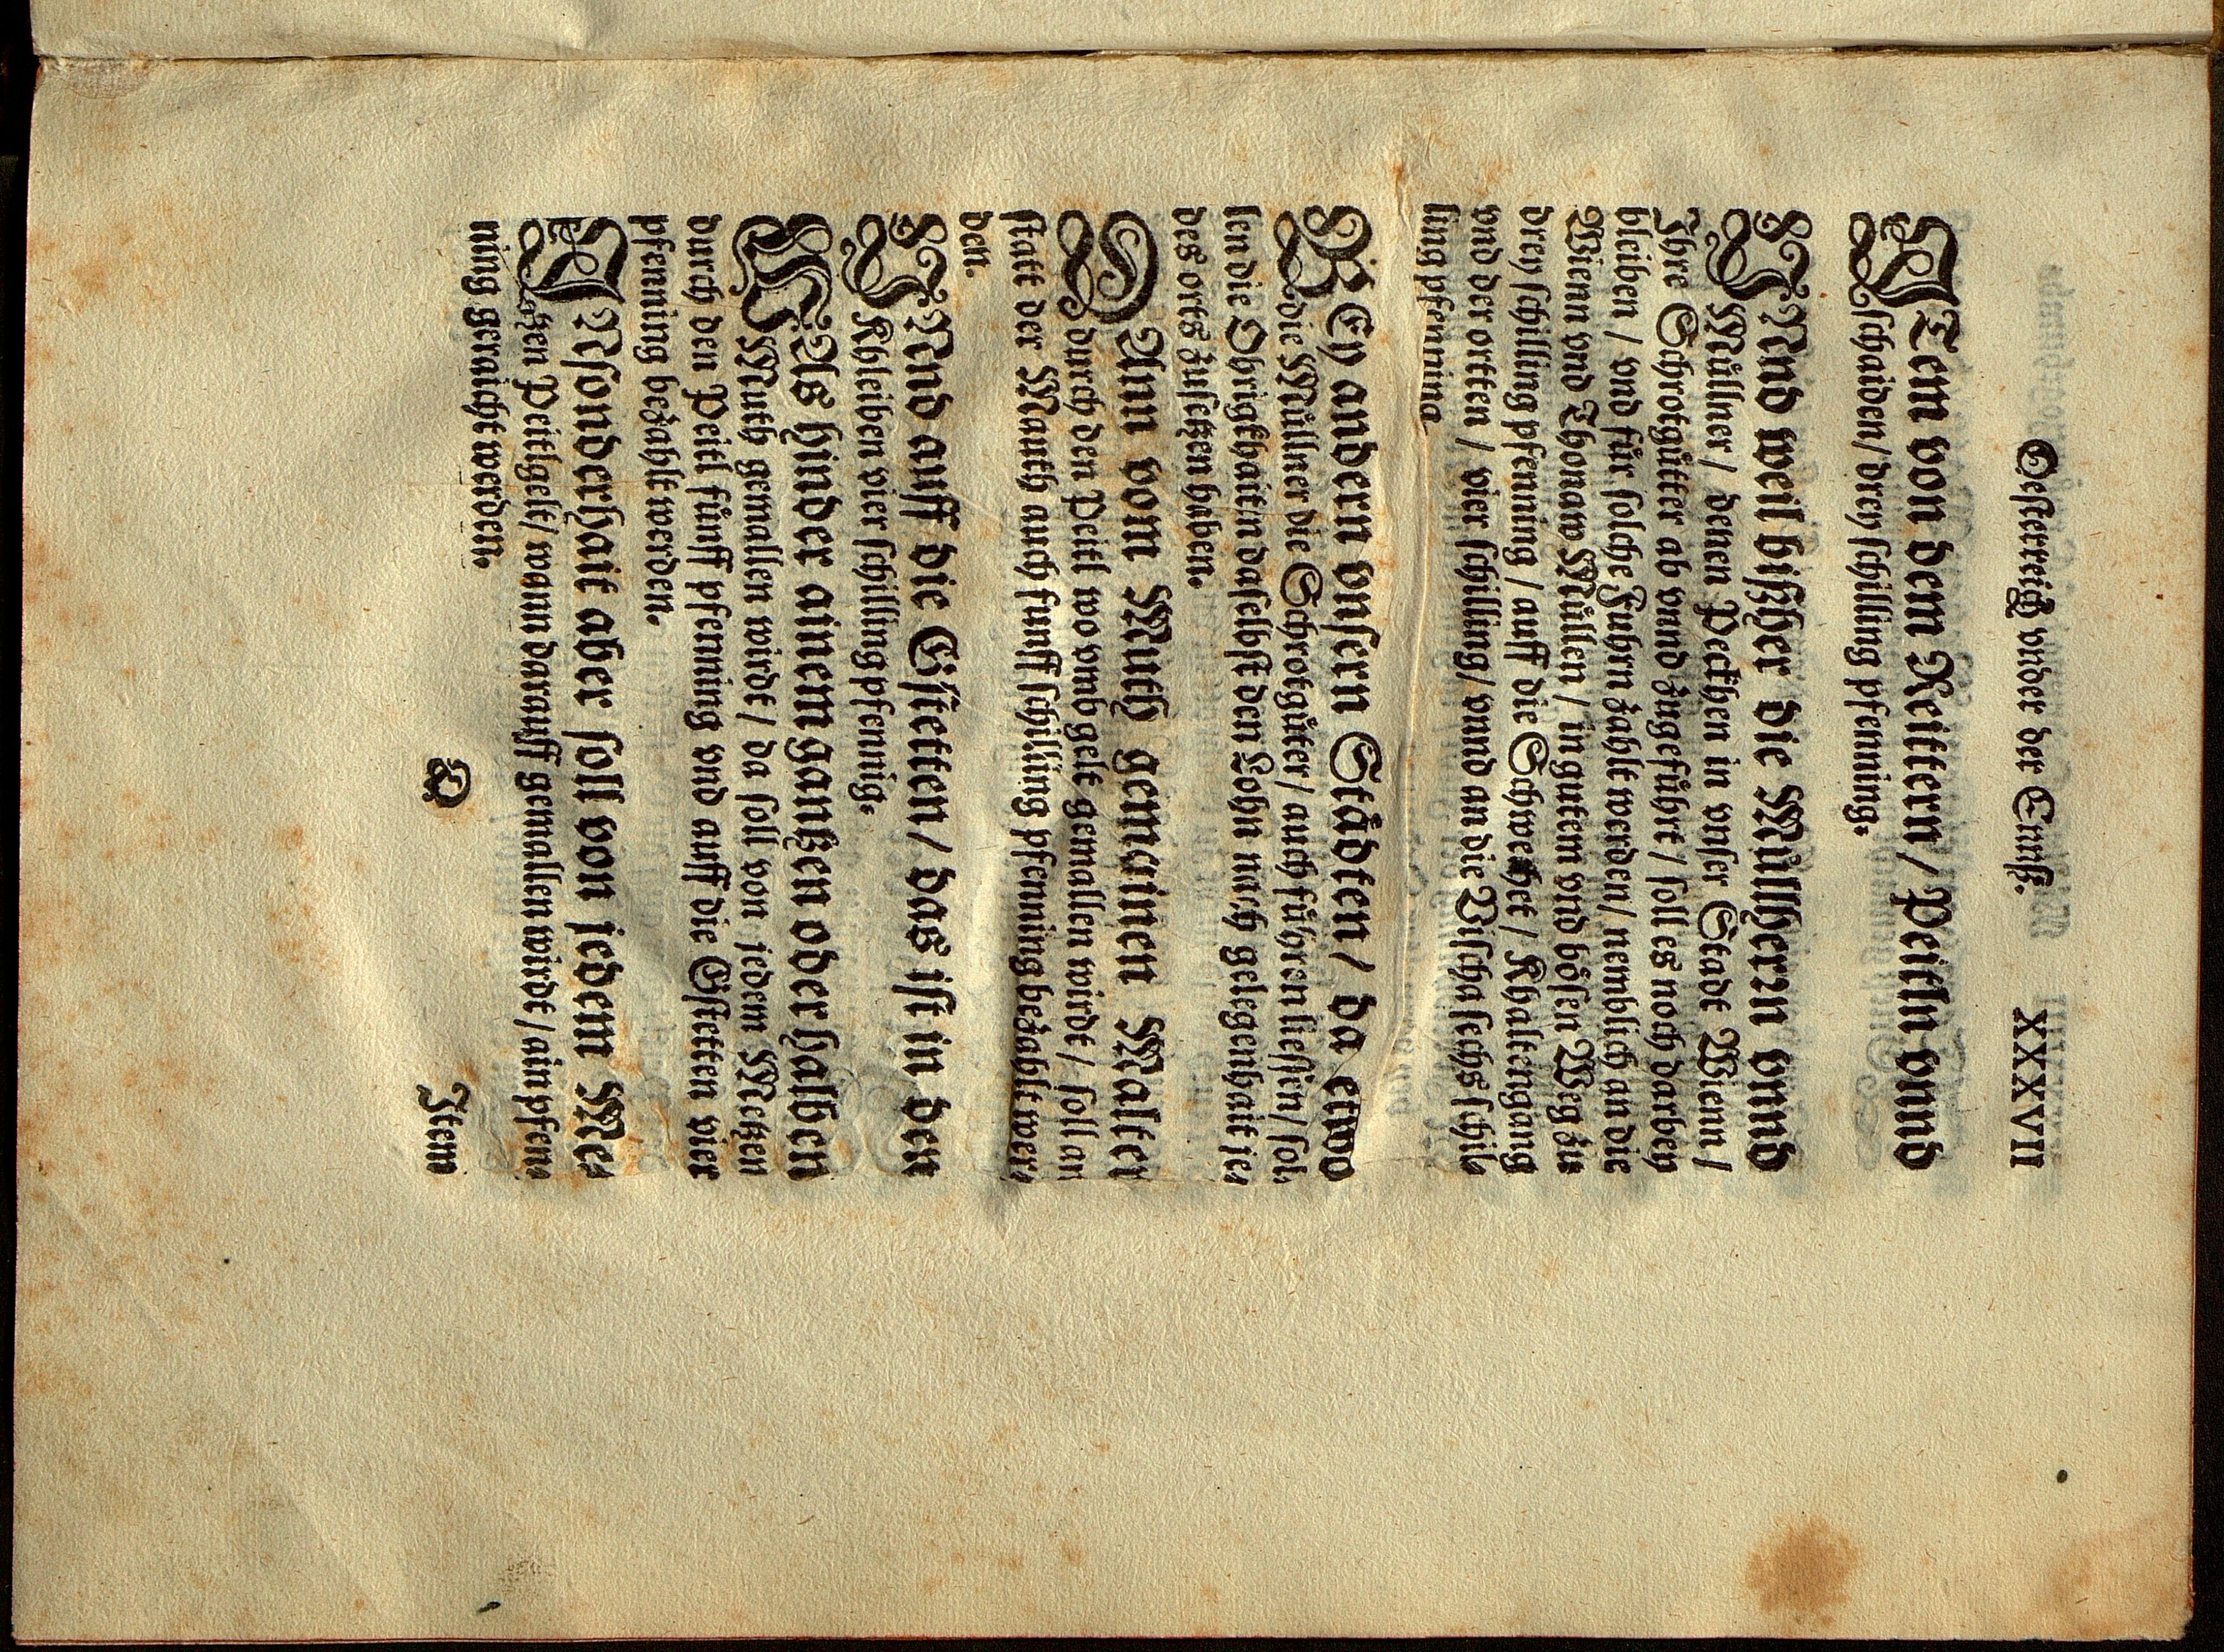 Oesterreich vnder der Ennß. XXXVII
ITem von dem Reittern / Peitln vnnd
Abschaiden / drey schilling pfenning.
VNnd weil bißher die Müllherrn vnnd
Müllner / denen Peckhen in vnser Stadt Wienn /
Ihre Schrotgütter ab vnnd zugeführt / soll es noch darbey
bleiben / vnd für solche Fuhrn zahlt werden / nemblich an die
Wienn vnd Thonaw Müllen / in gutem vnd bösen Weg zu
drey schilling pfenning / auff die Schwechet / Khaltengang
vnd der ortten / vier schilling / vnnd an die Vischa sechs schil-
ling pfenning
BEy andern vnsern Städten / da etwo
die Müllner die Schrotgüter / auch führen liessen / sol-
len die Obrigkhaiten daselbst den Lohn nach gelegenhait je-
des orts zusetzen haben.
DAnn vom Muth gemainen Malter
durch den Peitl wo vmb gelt gemallen wirdt / soll an
statt der Mauth auch funff schilling pfenning bezahlt wer-
den.
VNnd auff die Eistetten / das ist in den
Khleiben vier schilling pfennig.
WAs hinder ainem gantzen oder halben
Muth gemallen wirdt / da soll von jedem Metzen
durch den Peitl fünff pfenning vnd auff die Eistetten vier
pfenning bezahlt werden.
INsonderhait aber soll von jedem Me-
tzen Peittlgelt / wann darauff gemallen wirdt / ain pfen-
ning geraicht werden.
Item